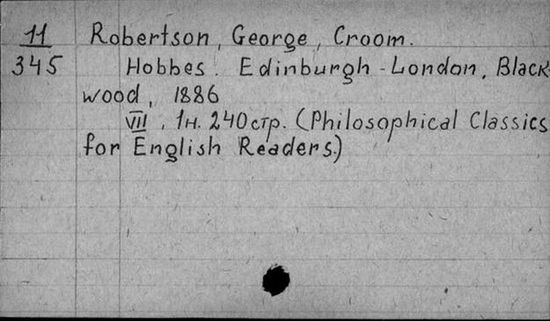 11
345
Robertson, George, Croom.
Hobbes. Edinburgh-London, Black-
wood, 1886
VII, 1н. 240 стр. (Philosophical Classics
for English Readers.)